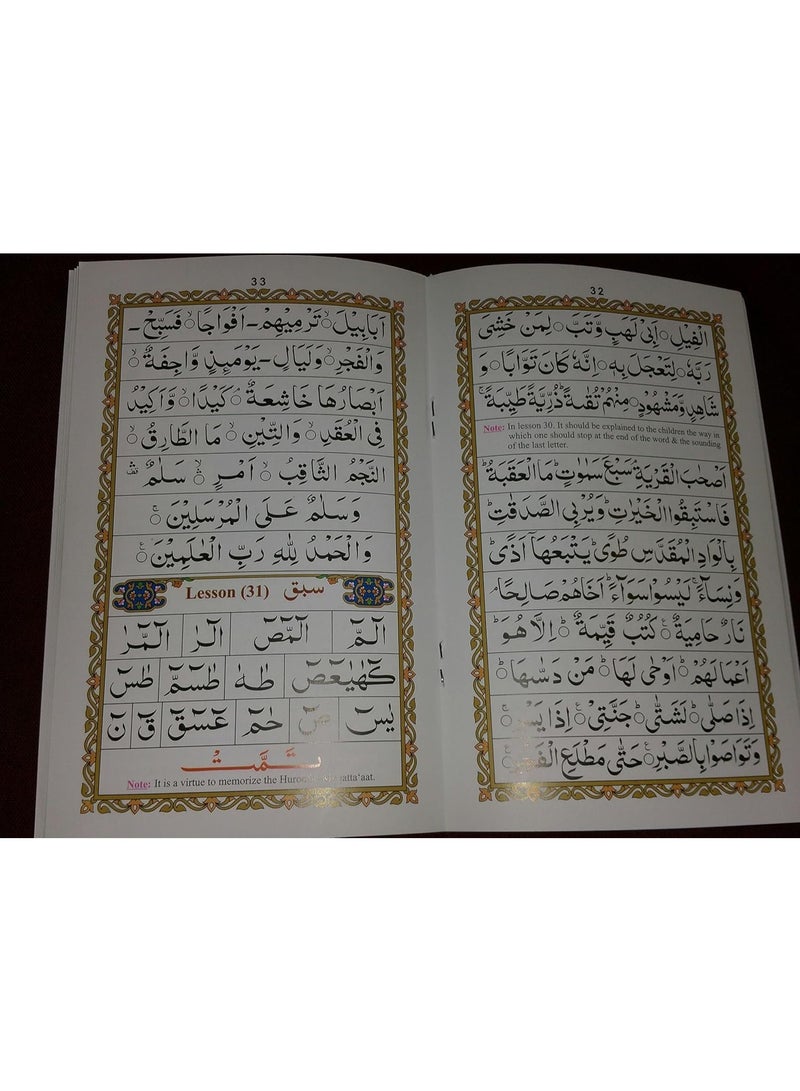 32
الْفِيْلِ ۝ اَبِیْ لَهَبٍ وَّتَبَّ ۝ لِمَنْ خَشِیَ
رَبَّهٗ ۝ لِتَعْجَلَ بِهٖ ۝ اِنَّهٗ كَانَ تَوَّابًا ۝ وَ
شَاهِدٍ وَّمَشْهُوْدٍ ۝ مِنْهُمْ تُقٰىةً ؕ ذُرِّیَّةً طَیِّبَةً ۚ
Note: In lesson 30. It should be explained to the children the way in
which one should stop at the end of the word & the sounding
of the last letter.
اَصْحٰبَ الْقَرْیَةِ ۘ سَبْعَ سَمٰوٰتٍ ؕ مَا الْعَقَبَةُ ؕ
فَاسْتَبِقُوا الْخَیْرٰتِ ؕ وَیُرْبِی الصَّدَقٰتِ ؕ
بِالْوَادِ الْمُقَدَّسِ طُوًی ؕ یَّتْبَعُهَاۤ اَذًی ؕ
وَنِسَآءً ۚ لَیْسُوْا سَوَآءً ؕ اَخَاهُمْ صٰلِحًا ۘ
نَارٌ حَامِیَةٌ ۠ كُتُبٌ قَیِّمَةٌ ؕ اِلَّا هُوَ ؕ
اَعْمَالَهُمْ ؕ اَوْحٰی لَهَا ؕ مَنْ دَسّٰىهَا ؕ
اِذَا صَلّٰی ؕ لَشَتّٰی ؕ جَنَّتِیْ ۠ اِذَا یَسْرِ ۚ
وَتَوَاصَوْا بِالصَّبْرِ ۠ حَتّٰی مَطْلَعِ الْفَجْرِ
33
اَبَابِیْلَ ۝ تَرْمِیْهِمْ ـ اَفْوَاجًا ۝ فَسَبِّحْ ـ
وَالْفَجْرِ ۝ وَلَیَالٍ ـ یَوْمَىِٕذٍ وَّاجِفَةٌ ۝
اَبْصَارُهَا خَاشِعَةٌ ۘ كَیْدًا ۝ وَّاَكِیْدُ
فِی الْعُقَدِ ۝ وَالتِّیْنِ ۝ مَا الطَّارِقُ ۝
النَّجْمُ الثَّاقِبُ ۝ اَمْرٍ ۝ سَلٰمٌ
وَسَلٰمٌ عَلَی الْمُرْسَلِیْنَ ۝
وَالْحَمْدُ لِلّٰهِ رَبِّ الْعٰلَمِیْنَ ۝
Lesson (31) سبق
الٓمّٓ الٓمّٓصٓ الٓرٰ الٓمّٓرٰ
كٓهٰیٰعٓصٓ طٰهٰ طٰسٓمّٓ طٰسٓ
یٰسٓ صٓ حٰمٓ عٓسٓقٓ قٓ نٓ
تَمَّتْ
Note: It is a virtue to memorize the